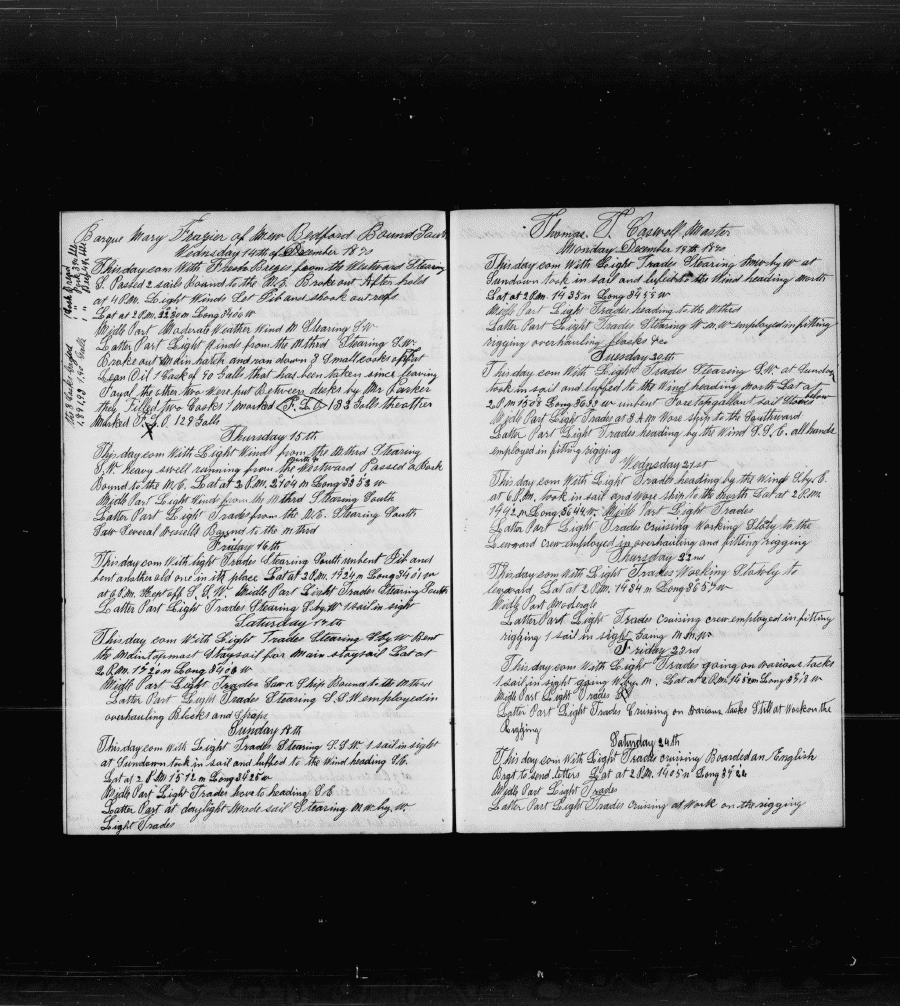 Barque Mary Frazier of New Bedford Bound South
Wednesday 14th of December 1870
This day com With Fresh Brezes from the Westward Stearing
S. Passed 2 sails Bound to the N.E. Broke out After hold
at 4 P.M. Light Winds Set Jib and shook out reefs
Lat at 2 P.M. 2230 N Long 3400 W
Midle Part Moderate Weather Wind N Stearing SW
Latter Part Light Winds from the Northrd Stearing S.W.
Broke out Main hatch and ran down 3 Small casks of
Lean Oil 1 Cask of 90 Galls that has been taken since leaving
Fayal the other two Were put Between decks by Mr Parker
they Filled two Casks 1 marked F.L.O 133 Galls the other
Marked F.L.O. 129 Galls
Thursday 15th
This day com With Light Winds from the Northrd Stearing
S.W. Heavy swell running from the Westward Passed a Bark
Bound to the N.E. Lat at 2 P.M. 2104 N Long 3353 W
Midle Part Light Winds from the Northrd Stearing South
Latter Part Light Trade from the N.E. Stearing South
Saw Several Vessells Bound to the Northrd
Friday 16th
This day com With light Trades Stearing South unbent Jib and
bent another old one in its place Lat at 2 P.M. 1924 N Long 3401 W
at 6 P.M. Kept off S.S.W. Midle Part Light Trades Stearing South
Latter Part Light Trades Stearing S by W 1 sail in sight
Saturday 17th
This day com With Light Trades Stearing S by W Bent
the Maintopmast Staysail for Main staysail Lat at
2 P.M. 1720 N Long 3403 W
Midle Part Light Trades Saw a Ship Bound to the Northrd
Latter Part Light Trades Stearing S.S.W. employed in
overhauling Blocks and Straps
Sunday 18th
This day com With Light Trades Stearing S.S.W. 1 sail in sight
at Sundown took in sail and luffed to the Wind heading S.E.
Lat at 2 P.M. 1512 N Long 3425 W
Midle Part Light Trades hove to heading S.E.
Latter Part at daylight Made sail Stearing N.W. by W
Light Trades
Thomas. T. Carswell Master
Monday December 19th 1870
This day com With Light Trades Stearing NW by W at
Sundown took in sail and luffed to the Wind heading North
Lat at 2 P.M. 1435 N Long 3455 W
Midle Part Light Trades heading to the Northrd
Latter Part Light Trades Stearing W.N.W. employed in fitting
rigging overhauling Blocks &c
Tuesday 20th
This day com With Light Trades Stearing S.W. at Sundown
took in sail and luffed to the Wind heading North Lat at
2 P.M. 1503 Long 3639 W unbent Foretopgallant sail
Midle Part Light Trades at 3 A.M. Wore ship to the Southward
Latter Part Light Trades heading by the Wind S.S.E. all hands
employed in fitting rigging
Wednesday 21st
This day com With Light Trades heading by the Wind S by E.
at 6 P.M. took in sail and Wore ship to the North Lat at 2 P.M.
1442 N Long 3644 W. Midle Part Light Trades
Latter Part Light Trades cruising Working Slowly to the
Leward crew employed in overhauling and fitting rigging
Thursday 22nd
This day com With Light Trades Working Slowly to
Leward. Lat at 2 P.M. 1434 N Long 3657 W
Midle Part Moderate
Latter Part Light Trades cruising crew employed in fitting
rigging 1 sail in sight Going N.N.W
Friday 23rd
This day com With Light Trades going on various tacks
1 sail in sight going W by N. Lat at 2 P.M. Long 3713 W
Midle Part Light Trades
Latter Part Light Trades Cruising on various tacks Still at Work on the
Rigging
Saturday 24th
This day com With Light Trades cruising Boarded an English
Brigt to send letters Lat at 2 P.M. 1405 N Long 3722
Midle Part Light Trades
Latter Part Light Trades cruising at Work on the rigging